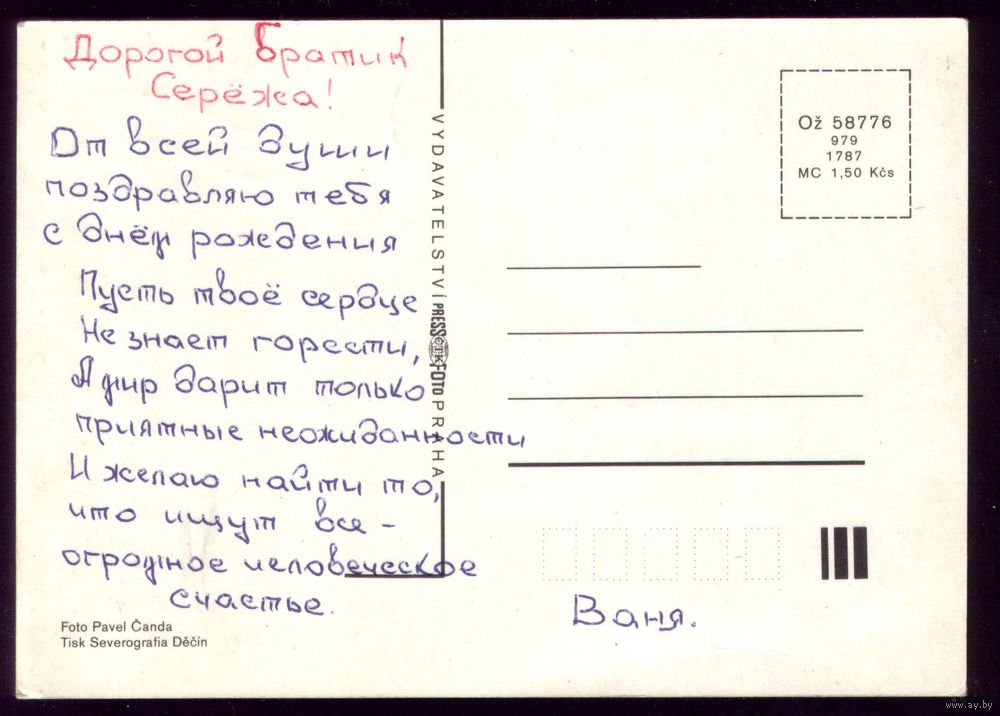 Дорогой братик
Серёжа!
От всей души
поздравляю тебя
с днём рождения
Пусть твоё сердце
Не знает горести,
А мир дарит только
приятные неожиданности
И желаю найти то,
что ищут все -
огромное человеческое
счастье.
Foto Pavel Čanda
Tisk Severografia Děčín
VYDAVATELSTVÍ PRESSFOTO PRAHA
ČTK
Ož 58776
979
1787
MC 1,50 Kčs
Ваня.
www.ay.by